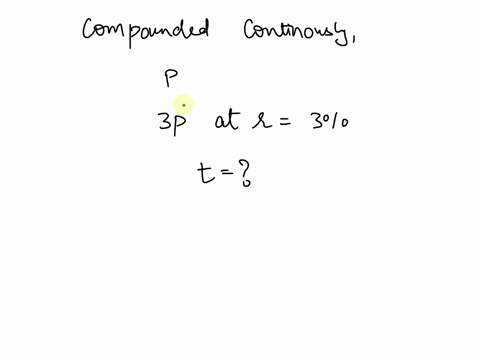 Compounded Continously,
P
3P at r = 3%
t = ?